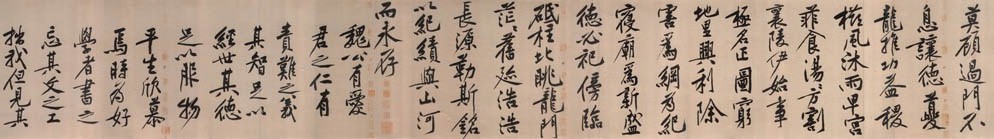 莫顧過門不
息讓德夔
龍推功益稷
櫛風沐雨卑宮
菲食湯方割
襄陵伊始事
極名正圖窮
地里興利除
害爲綱爲紀
寢廟爲新盛
德必祀傍臨
砥柱北眺龍門
茫舊跡浩浩
長源勒斯銘
以紀績與山河
而永存
魏公有愛
君之仁有
責難之義
其智足以
經世其德
足以服物
平生欣慕
焉時爲好
學者書之
忘其文之工
拙我但見其